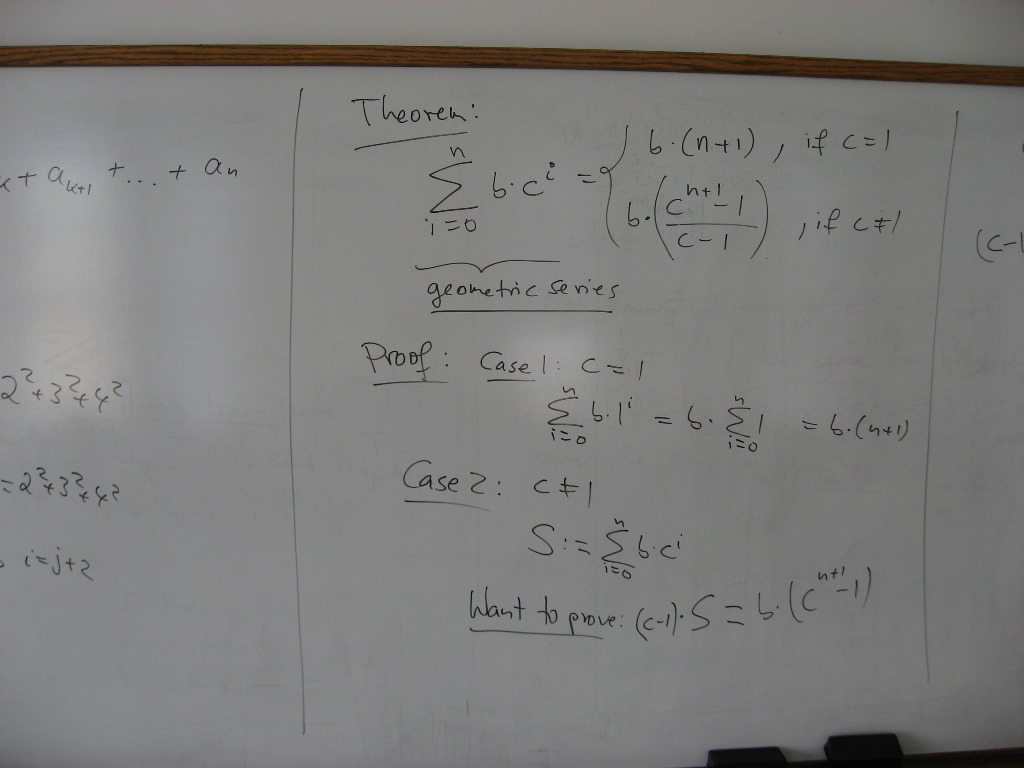 + a_{k+1} + ... + a_n
2² + 3² + 4²
= 2² + 3² + 4²
i = j + 2
Theorem:
\sum_{i=0}^{n} b · c^i = { b · (n+1) , if c = 1
b · ( \frac{c^{n+1} - 1}{c - 1} ) , if c ≠ 1
geometric series
Proof: Case 1: c = 1
\sum_{i=0}^{n} b · 1^i = b · \sum_{i=0}^{n} 1 = b · (n+1)
Case 2: c ≠ 1
S := \sum_{i=0}^{n} b · c^i
Want to prove: (c-1) · S = b · (c^{n+1} - 1)
(c-1